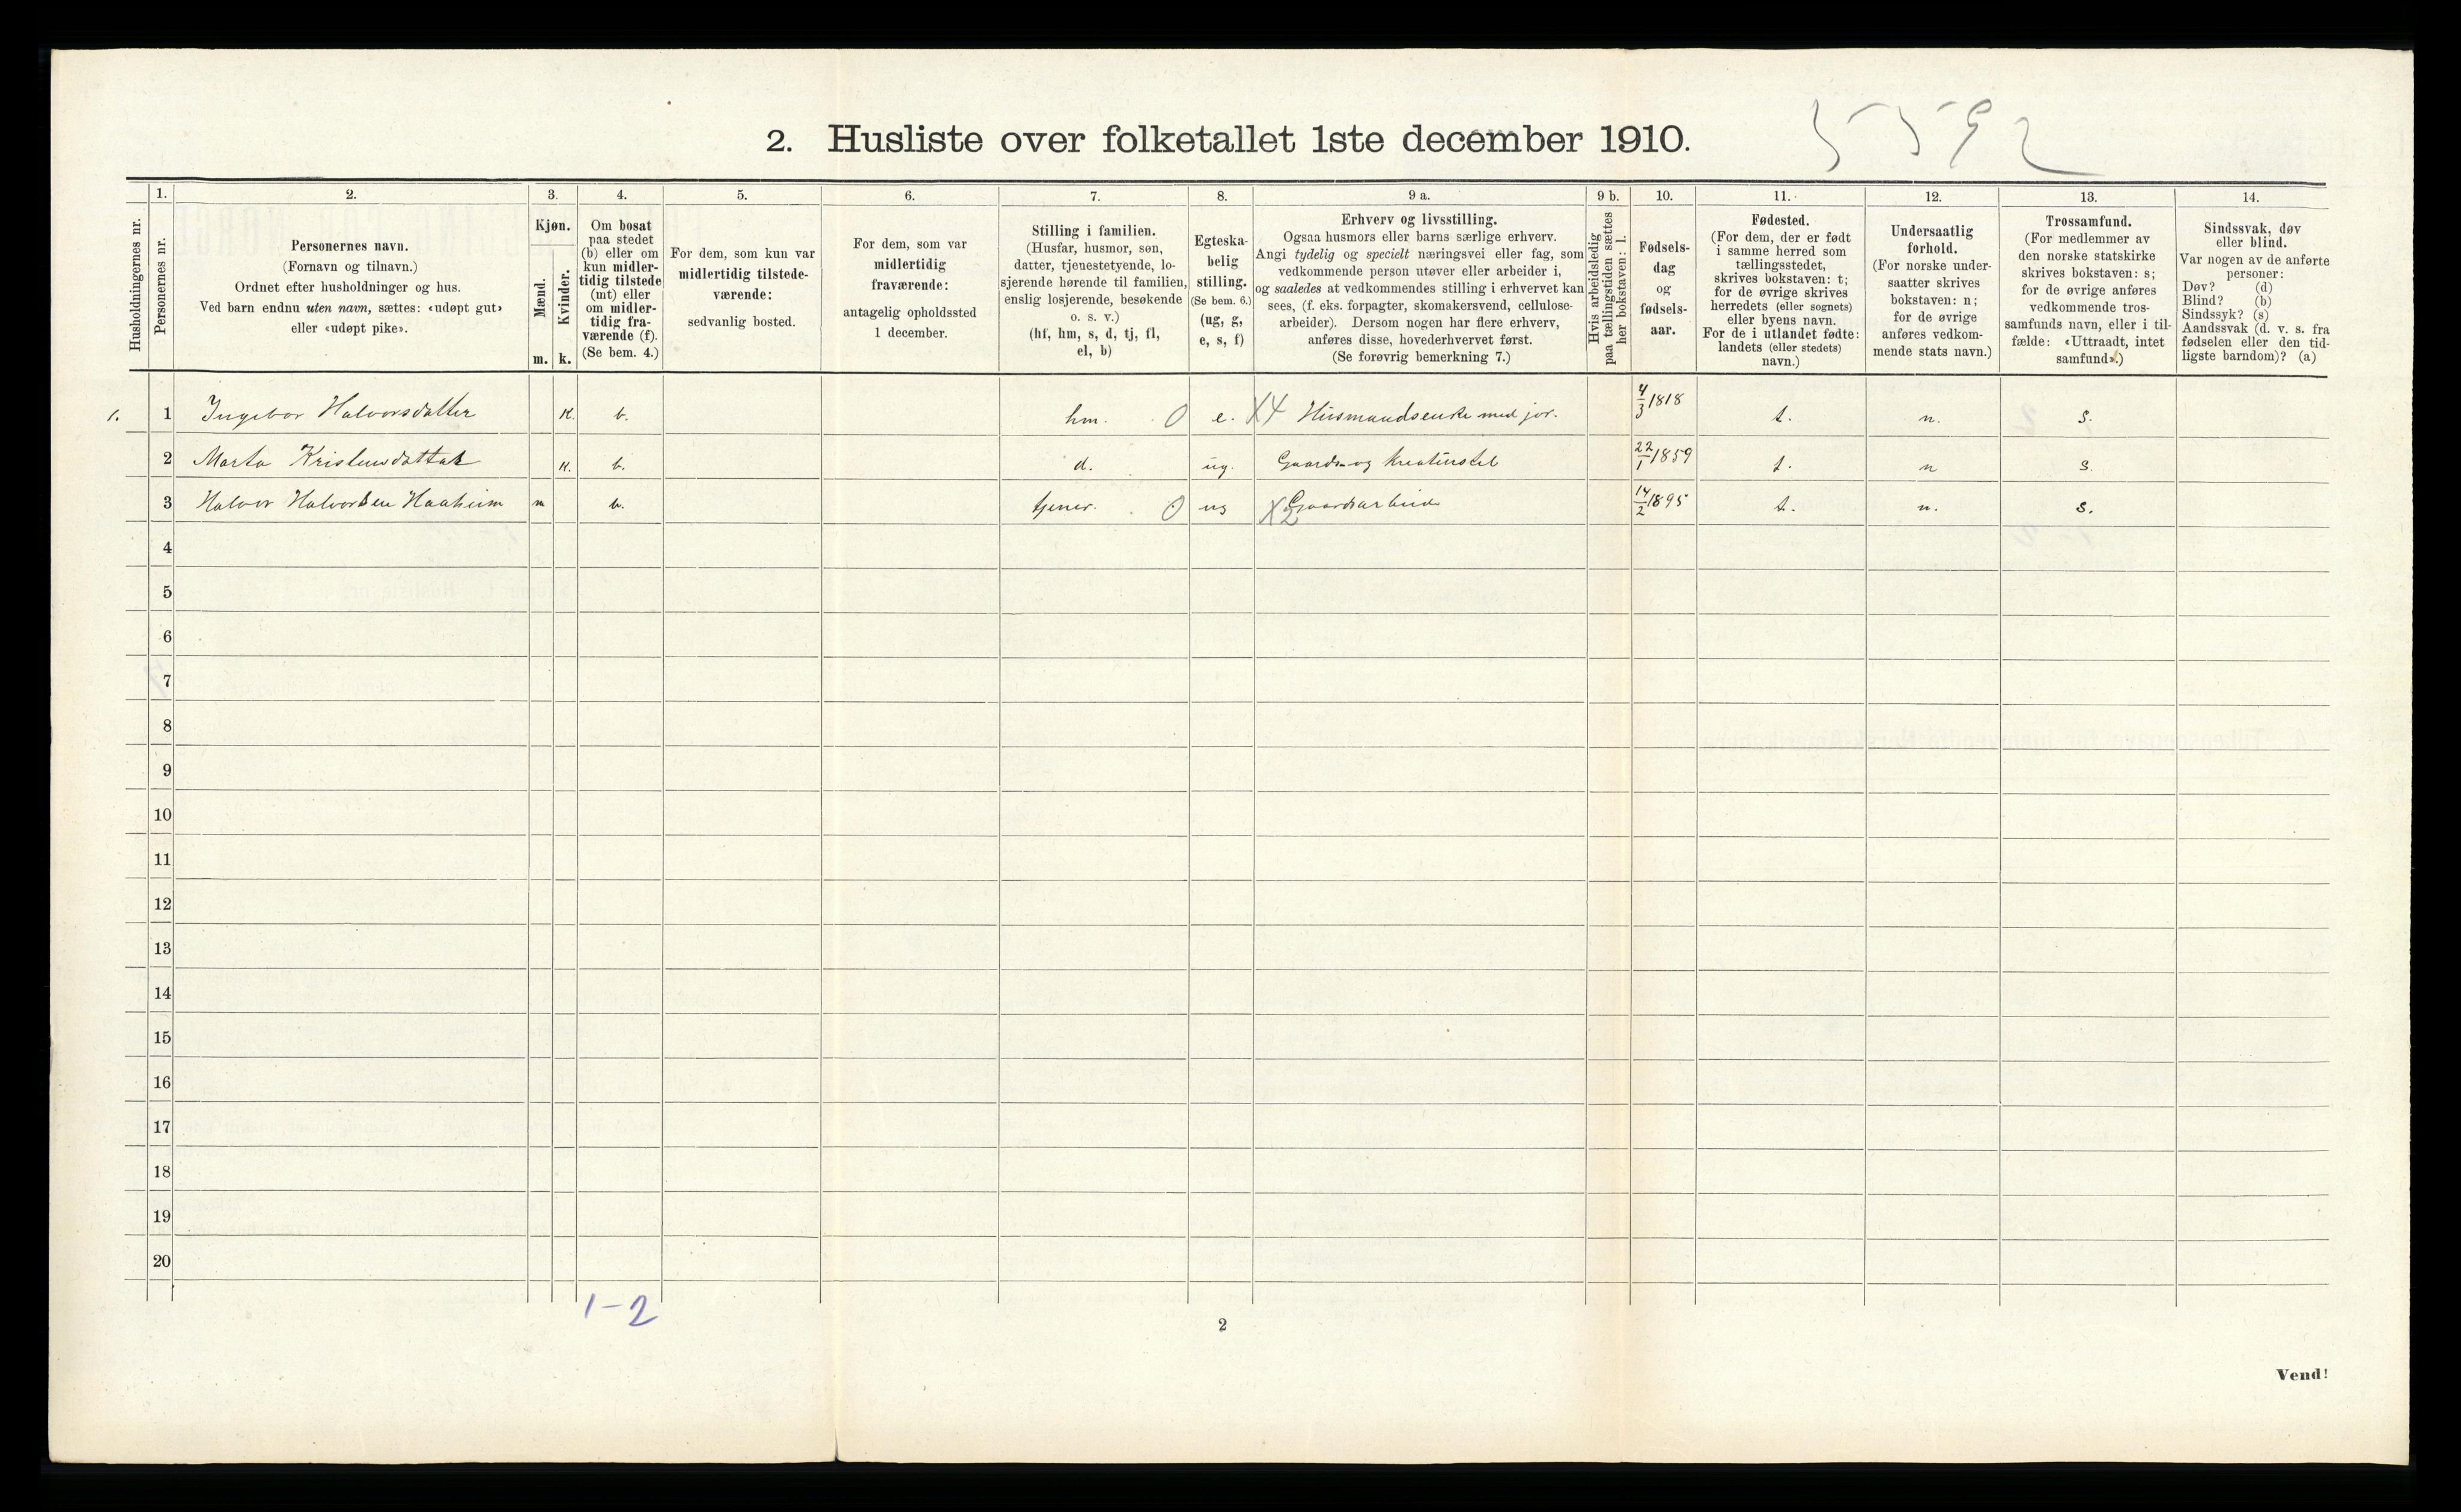 5592
2. Husliste over folketallet 1ste december 1910.
Husholdningernes nr.
1.
Personernes nr.
2.
Personernes navn.
(Fornavn og tilnavn.)
Ordnet efter husholdninger og hus.
Ved barn endnu uten navn, sættes: «udøpt gut»
eller «udøpt pike».
3.
Kjøn.
Mænd.
m.
Kvinder.
k.
4.
Om bosat
paa stedet
(b) eller om
kun midler-
tidig tilstede
(mt) eller
om midler-
tidig fra-
værende (f).
(Se bem. 4.)
5.
For dem, som kun var
midlertidig tilstede-
værende:
sedvanlig bosted.
6.
For dem, som var
midlertidig
fraværende:
antagelig opholdssted
1 december.
7.
Stilling i familien.
(Husfar, husmor, søn,
datter, tjenestetyende, lo-
sjerende hørende til familien,
enslig losjerende, besøkende
o. s. v.)
(hf, hm, s, d, tj, fl,
el, b)
8.
Egteska-
belig
stilling.
(Se bem. 6.)
(ug, g,
e, s, f)
9 a.
Erhverv og livsstilling.
Ogsaa husmors eller barns særlige erhverv.
Angi tydelig og specielt næringsvei eller fag, som
vedkommende person utøver eller arbeider i,
og saaledes at vedkommendes stilling i erhvervet kan
sees, (f. eks. forpagter, skomakersvend, cellulose-
arbeider). Dersom nogen har flere erhverv,
anføres disse, hovederhvervet først.
(Se forøvrig bemerkning 7.)
9 b.
Hvis arbeidsledig
paa tællingstiden sættes
her bokstaven: l.
10.
Fødsels-
dag
og
fødsels-
aar.
11.
Fødested.
(For dem, der er født
i samme herred som
tællingsstedet,
skrives bokstaven: t;
for de øvrige skrives
herredets (eller sognets)
eller byens navn.
For de i utlandet fødte:
landets (eller stedets)
navn.)
12.
Undersaatlig
forhold.
(For norske under-
saatter skrives
bokstaven: n;
for de øvrige
anføres vedkom-
mende stats navn.)
13.
Trossamfund.
(For medlemmer av
den norske statskirke
skrives bokstaven: s;
for de øvrige anføres
vedkommende tros-
samfunds navn, eller i til-
fælde: «Uttraadt, intet
samfund».)
14.
Sindssvak, døv
eller blind.
Var nogen av de anførte
personer:
Døv? (d)
Blind? (b)
Sindssyk? (s)
Aandssvak (d. v. s. fra
fødselen eller den tid-
ligste barndom)? (a)
1. 1 Ingebor Halvorsdatter K. b. hm. 0 e. X4 Husmandsenke med jor. 4/3 1818 t. n. s.
2 Marta K. b. d. ug. Gaards og kreaturstel 22/1 1859 t. n s.
3 Halvor Halvorsen Haaheim m b. tjener. 0 ug X2 Gaardsarbeide 14/2 1895 t. n. s.
4
5
6
7
8
9
10
11
12
13
14
15
16
17
18
19
20
1-2
2
Vend!